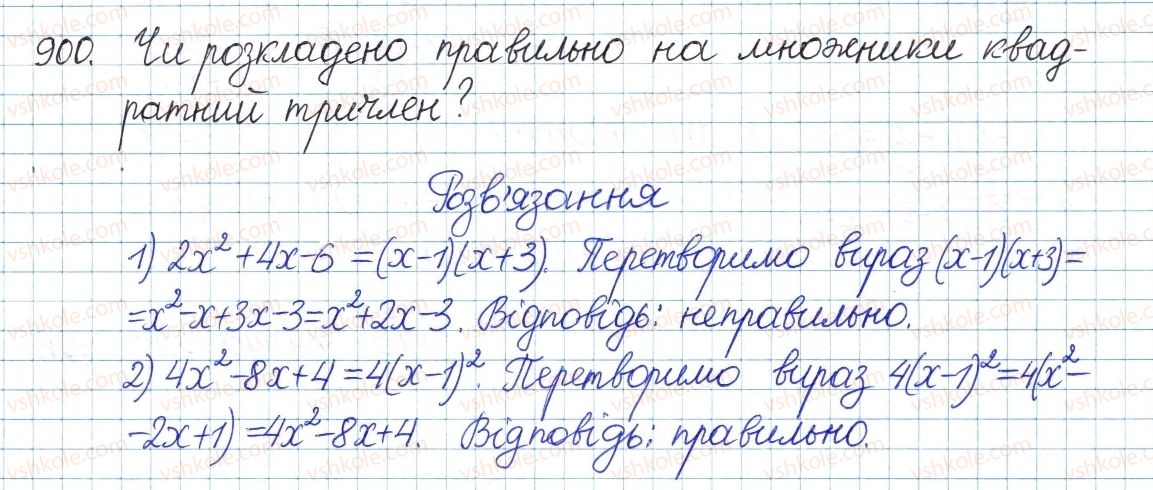 900. Чи розкладено правильно на множники квад-
ратний тричлен?
Розв'язання
1) 2x²+4x-6=(x-1)(x+3). Перетворимо вираз (x-1)(x+3)=
=x²-x+3x-3=x²+2x-3. Відповідь: неправильно.
2) 4x²-8x+4=4(x-1)². Перетворимо вираз 4(x-1)²=4(x²-
-2x+1)=4x²-8x+4. Відповідь: правильно.